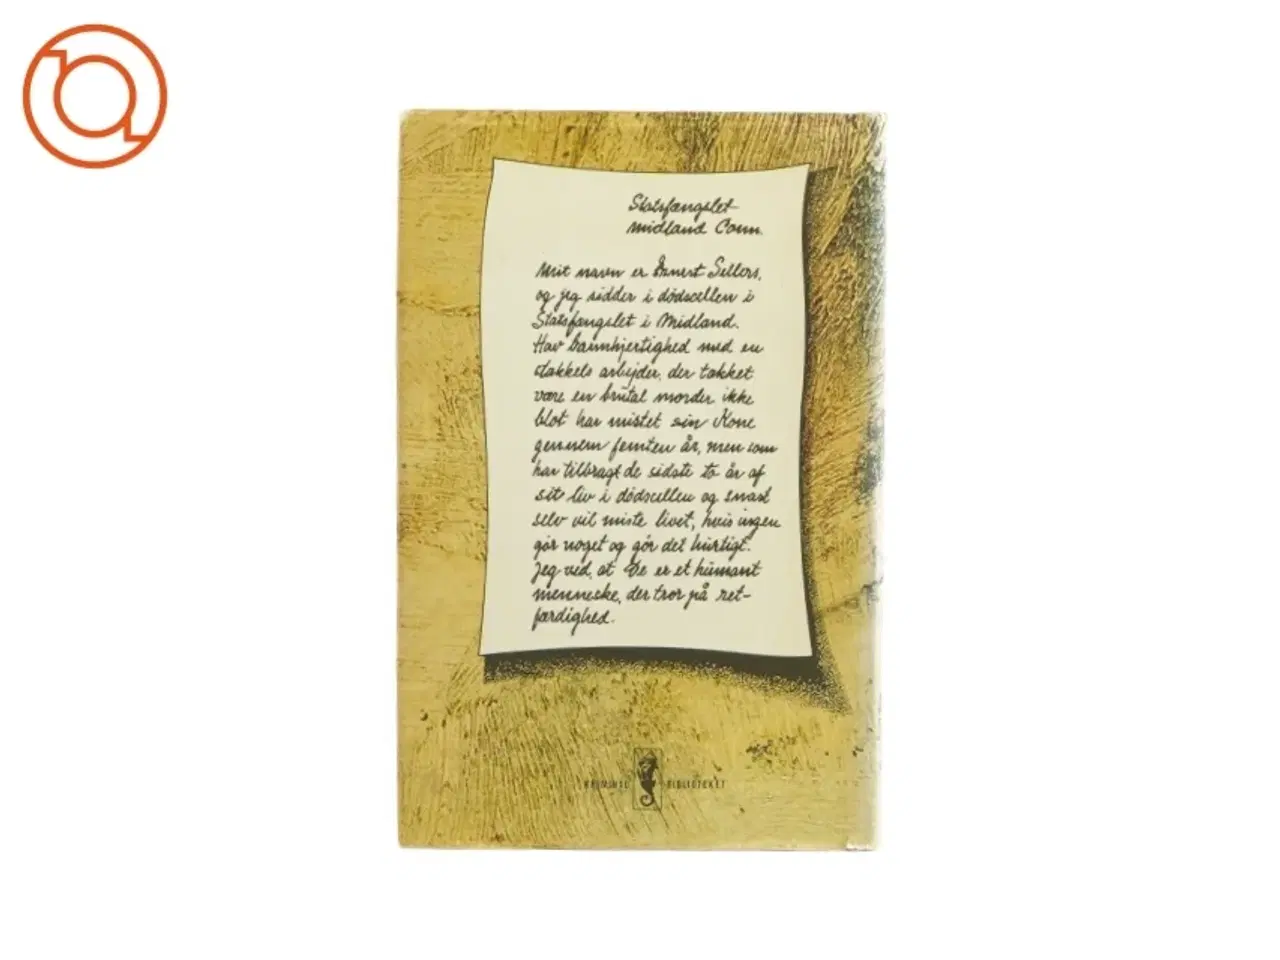 Statsfængslet
Midland Conn.
Mit navn er Ernest Sellers,
og jeg sidder i dødscellen i
Statsfængslet i Midland.
Hav barmhjertighed med en
stakkels arbejder, der takket
være en brutal morder ikke
blot har mistet sin Kone
gennem femten år, men som
har tilbragt de sidste to år af
sit liv i dødscellen og snart
selv vil miste livet, hvis ingen
gør noget og gør det hurtigt.
Jeg ved, at De er et humant
menneske, der tror på ret-
færdighed.
KRIMINAL BIBLIOTEKET